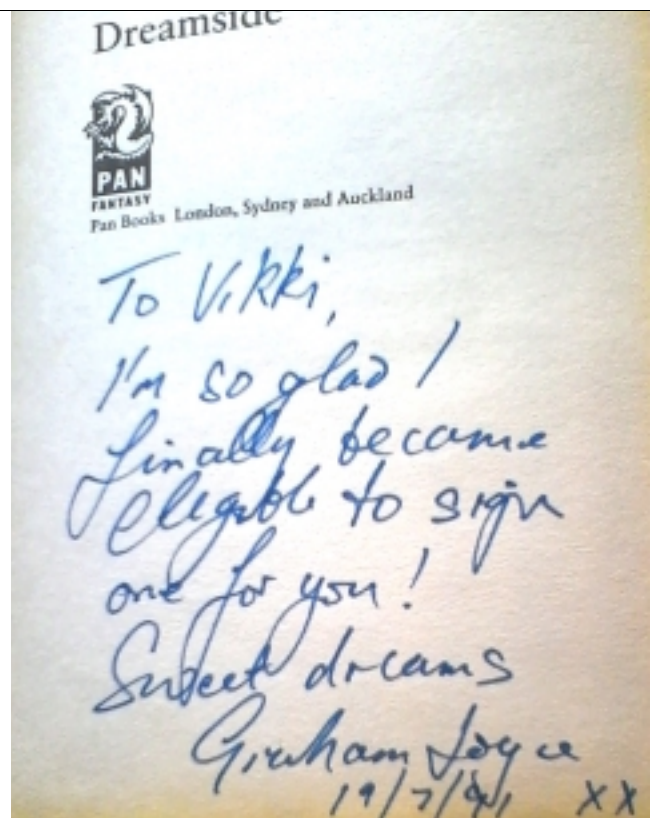 Dreamside
PAN
FANTASY
Pan Books London, Sydney and Auckland
To Vikki,
I'm so glad I
finally became
eligable to sign
one for you!
Sweet dreams
Graham Joyce
19/7/91 XX